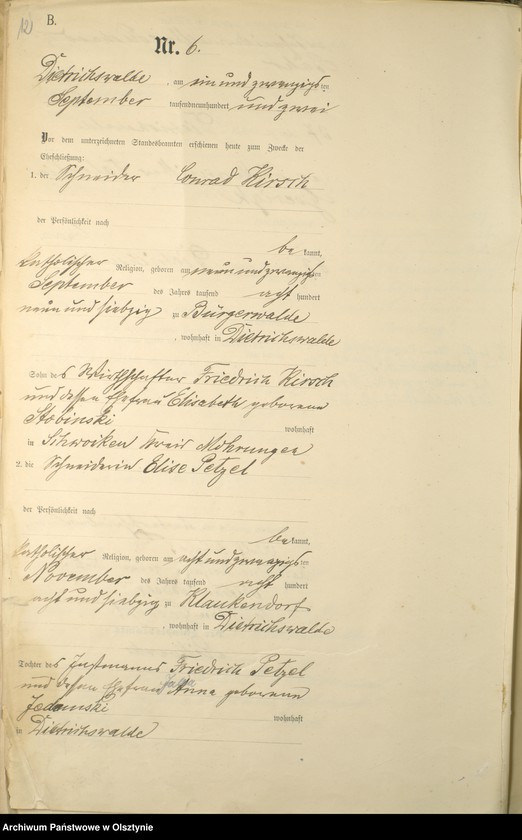 12
B.
Nr. 6.
Dietrichswalde, am ein und zwanzigsten
September tausendneunhundert und zwei
Vor dem unterzeichneten Standesbeamten erschienen heute zum Zwecke der
Eheschließung:
1. der Schneider Conrad Hirsch
der Persönlichkeit nach
be kannt,
katholischer Religion, geboren am neun und zwanzigsten
September des Jahres tausend acht hundert
neun und siebzig zu Bürgerwalde
, wohnhaft in Dietrichswalde
Sohn des Wirthschafter Friedrich Hirsch
und dessen Ehefrau Elisabeth geborene
Stobinski
wohnhaft
in Kreis Mohrungen
2. die Schneiderin Elise Petzel
der Persönlichkeit nach
be kannt,
katholischer Religion, geboren am acht und zwanzigsten
November des Jahres tausend acht hundert
acht und siebzig zu Klaukendorf
, wohnhaft in Dietrichswalde
Tochter des Instmanns Friedrich Petzel
und dessen Ehefrau Anna geborene
wohnhaft
in Dietrichswalde
Archiwum Państwowe w Olsztynie